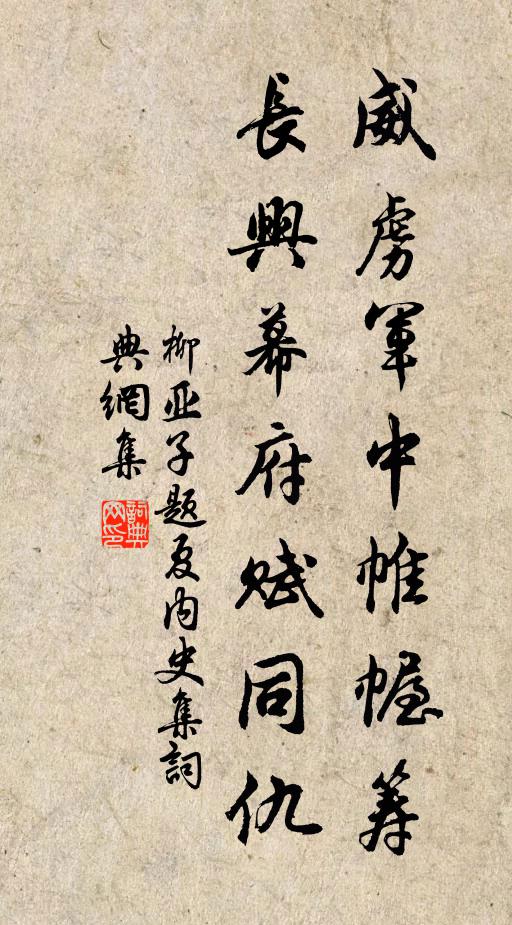 威虏軍中帷幄筹
長興幕府赋同仇
柳亚子题夏内史集詞
典網集
詞典
网印